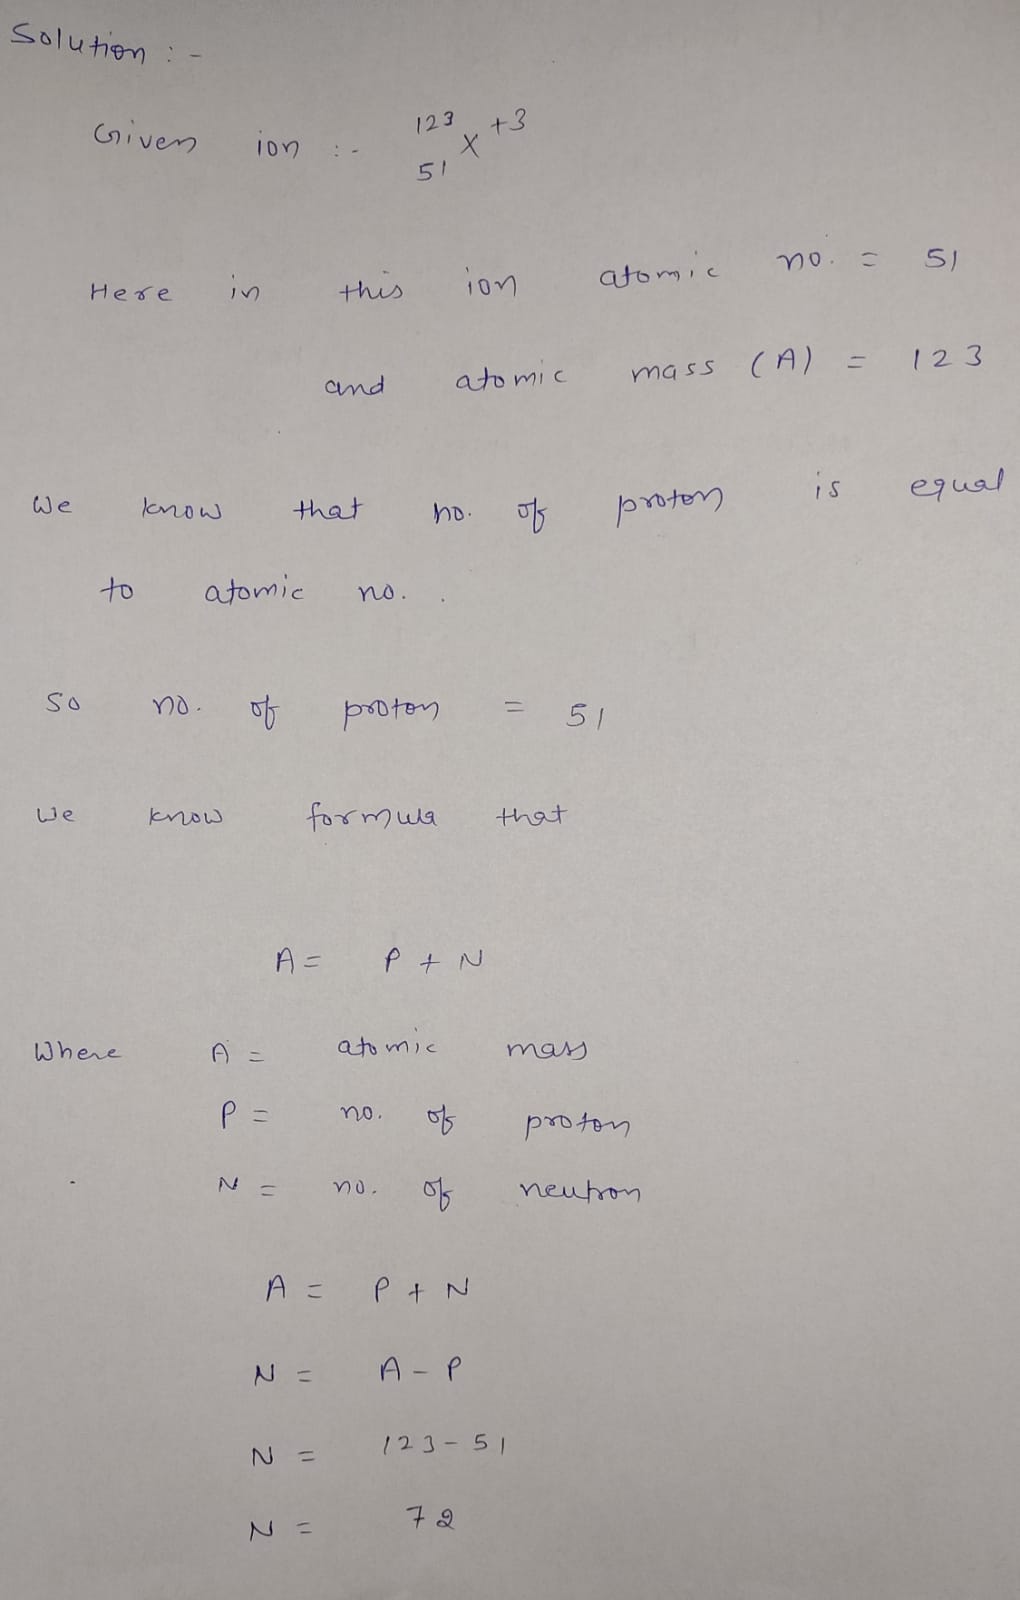 Solution :-
Given ion :- 123 51 X +3
Here in this ion atomic no. = 51
and atomic mass (A) = 123
We know that no. of proton is equal
to atomic no. .
So no. of proton = 51
We know formula that
A = P + N
Where A = atomic mass
P = no. of proton
N = no. of neutron
A = P + N
N = A - P
N = 123 - 51
N = 72